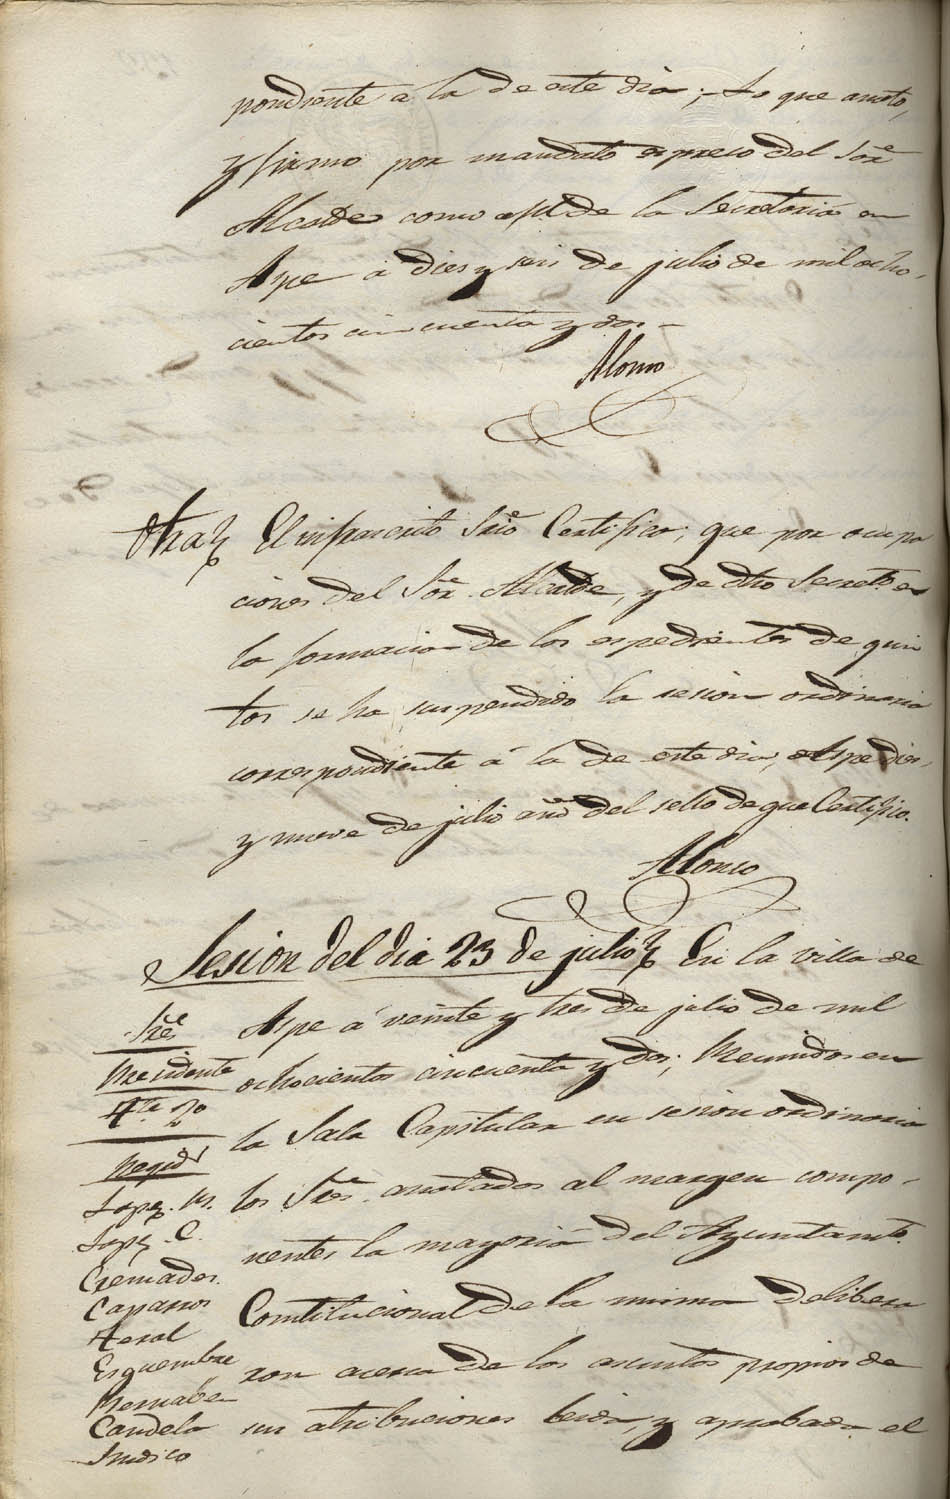 pondiente a la de este dia; Lo que anoto,
y firmo por mandato espreso del Sor.
Alcalde como de la Secretaria en
Aspe a dies y seis de julio de mil ocho-
cientos cincuenta y dos.-
Alonso
Otra El infrascrito Srio. Certifico; que por ocupa
ciones del Sor. Alcalde, y de dho Secreto. en
la formacion de los espedientes de quin
tos se ha suspendido la sesion ordinaria
correspondiente á la de este dia; Aspe dies,
y nueve de julio año del sello de que Certifico.
Alonso
Sesion del dia 23 de julio En la villa de
Aspe á veinte y tres de julio de mil
ochocientos cincuenta y dos; Reunidos en
la Sala Capitular en sesion ordinaria
los Sres. anotados al margen compo-
nentes la mayoria del Ayuntamto.
Constitucional de la misma delibera
ron acerca de los asuntos propios de
sus atribuciones leida, y aprobada el
Sres
Presidente
Tte. 2º
Regids
Lopez. M.
Lopz. C.
Cremades
Caparros
Aznar
Esquembre
Bernabeu
Candela
Sindico